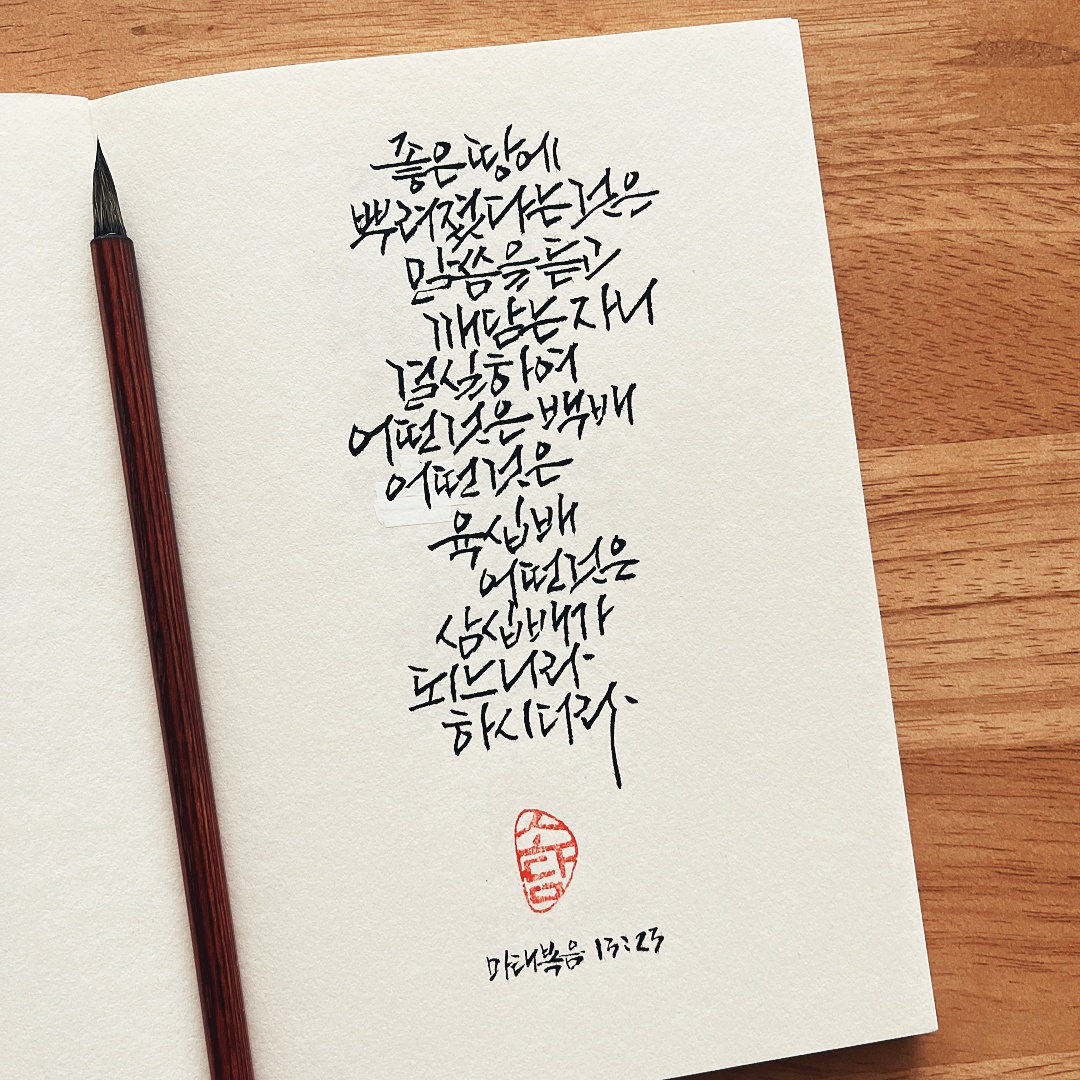 좋은 땅에
뿌려졌다는 것은
말씀을 듣고
깨닫는 자니
결실하여
어떤 것은 백배
어떤 것은
육십배
어떤 것은
삼십배가
되느니라
하시더라.
마태복음 13:23